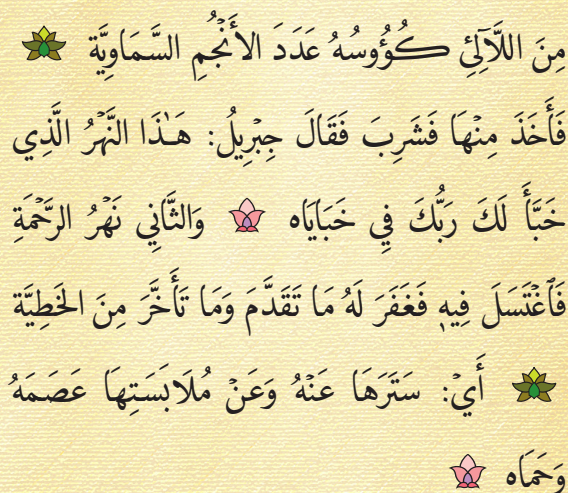 مِنَ اللَّآلِئِ كُؤُوسُهُ عَدَدَ الأَنْجُمِ السَّمَاوِيَّة
فَأَخَذَ مِنْهَا فَشَرِبَ فَقَالَ جِبْرِيلُ: هَـٰذَا النَّهْرُ الَّذِي
خَبَّأَ لَكَ رَبُّكَ فِي خَبَايَاه وَالثَّانِي نَهْرُ الرَّحْمَةِ
فَٱغْتَسَلَ فِيهِ فَغَفَرَ لَهُ مَا تَقَدَّمَ وَمَا تَأَخَّرَ مِنَ الخَطِيَّة
أَيْ: سَتَرَهَا عَنْهُ وَعَنْ مُلَابَسَتِهَا عَصَمَهُ
وَحَمَاه